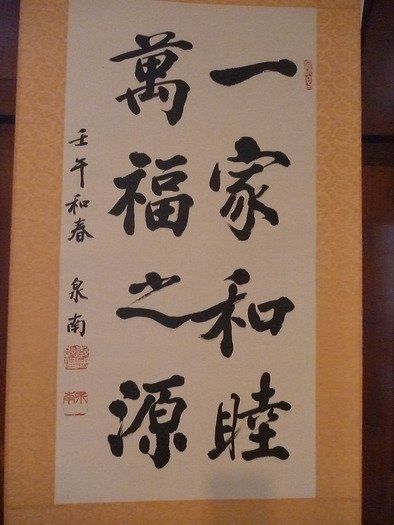 一家和睦
萬福之源
壬午和春 泉南